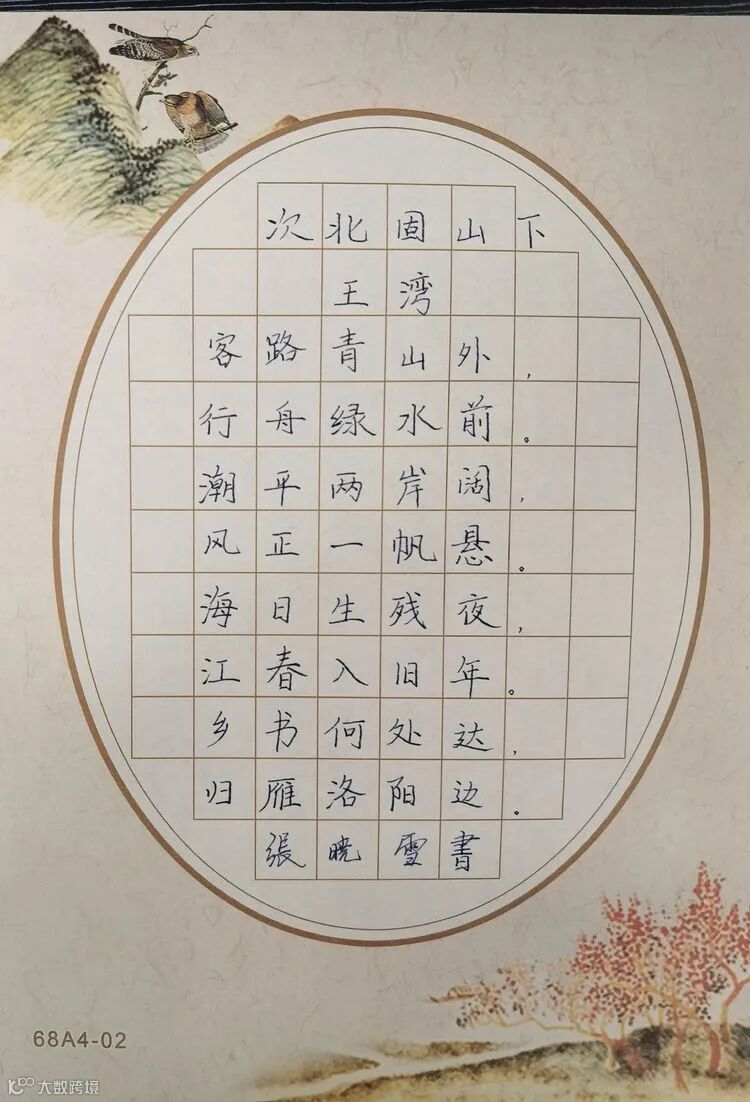 次北固山下
王湾
客路青山外，
行舟绿水前。
潮平两岸阔，
风正一帆悬。
海日生残夜，
江春入旧年。
乡书何处达，
归雁洛阳边。
張晓雪書
68A4-02
大数跨境